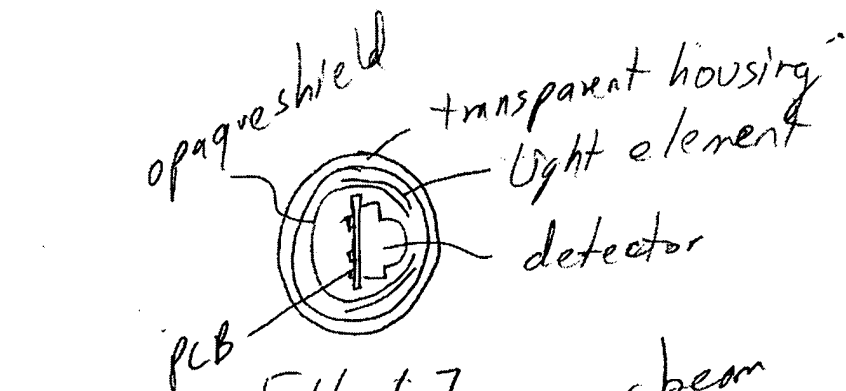 opaque shield
transparent housing
light element
detector
PCB
beam